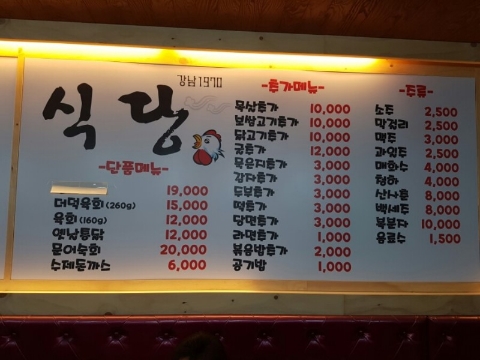 강남1970
식당
-단품메뉴-
19,000
더덕육회(260g) 15,000
육회(160g) 12,000
옛날통닭 12,000
문어숙회 20,000
수제돈까스 6,000
-추가메뉴-
목살추가 10,000
보쌈고기추가 10,000
닭고기추가 10,000
굴추가 12,000
묵은지추가 3,000
감자추가 3,000
두부추가 3,000
떡추가 3,000
당면추가 3,000
라면추가 1,000
볶음밥추가 2,000
공기밥 1,000
-주류-
소주 2,500
막걸리 2,500
맥주 3,000
과일주 2,500
매화수 4,000
청하 4,000
산사춘 8,000
백세주 8,000
복분자 10,000
음료수 1,500